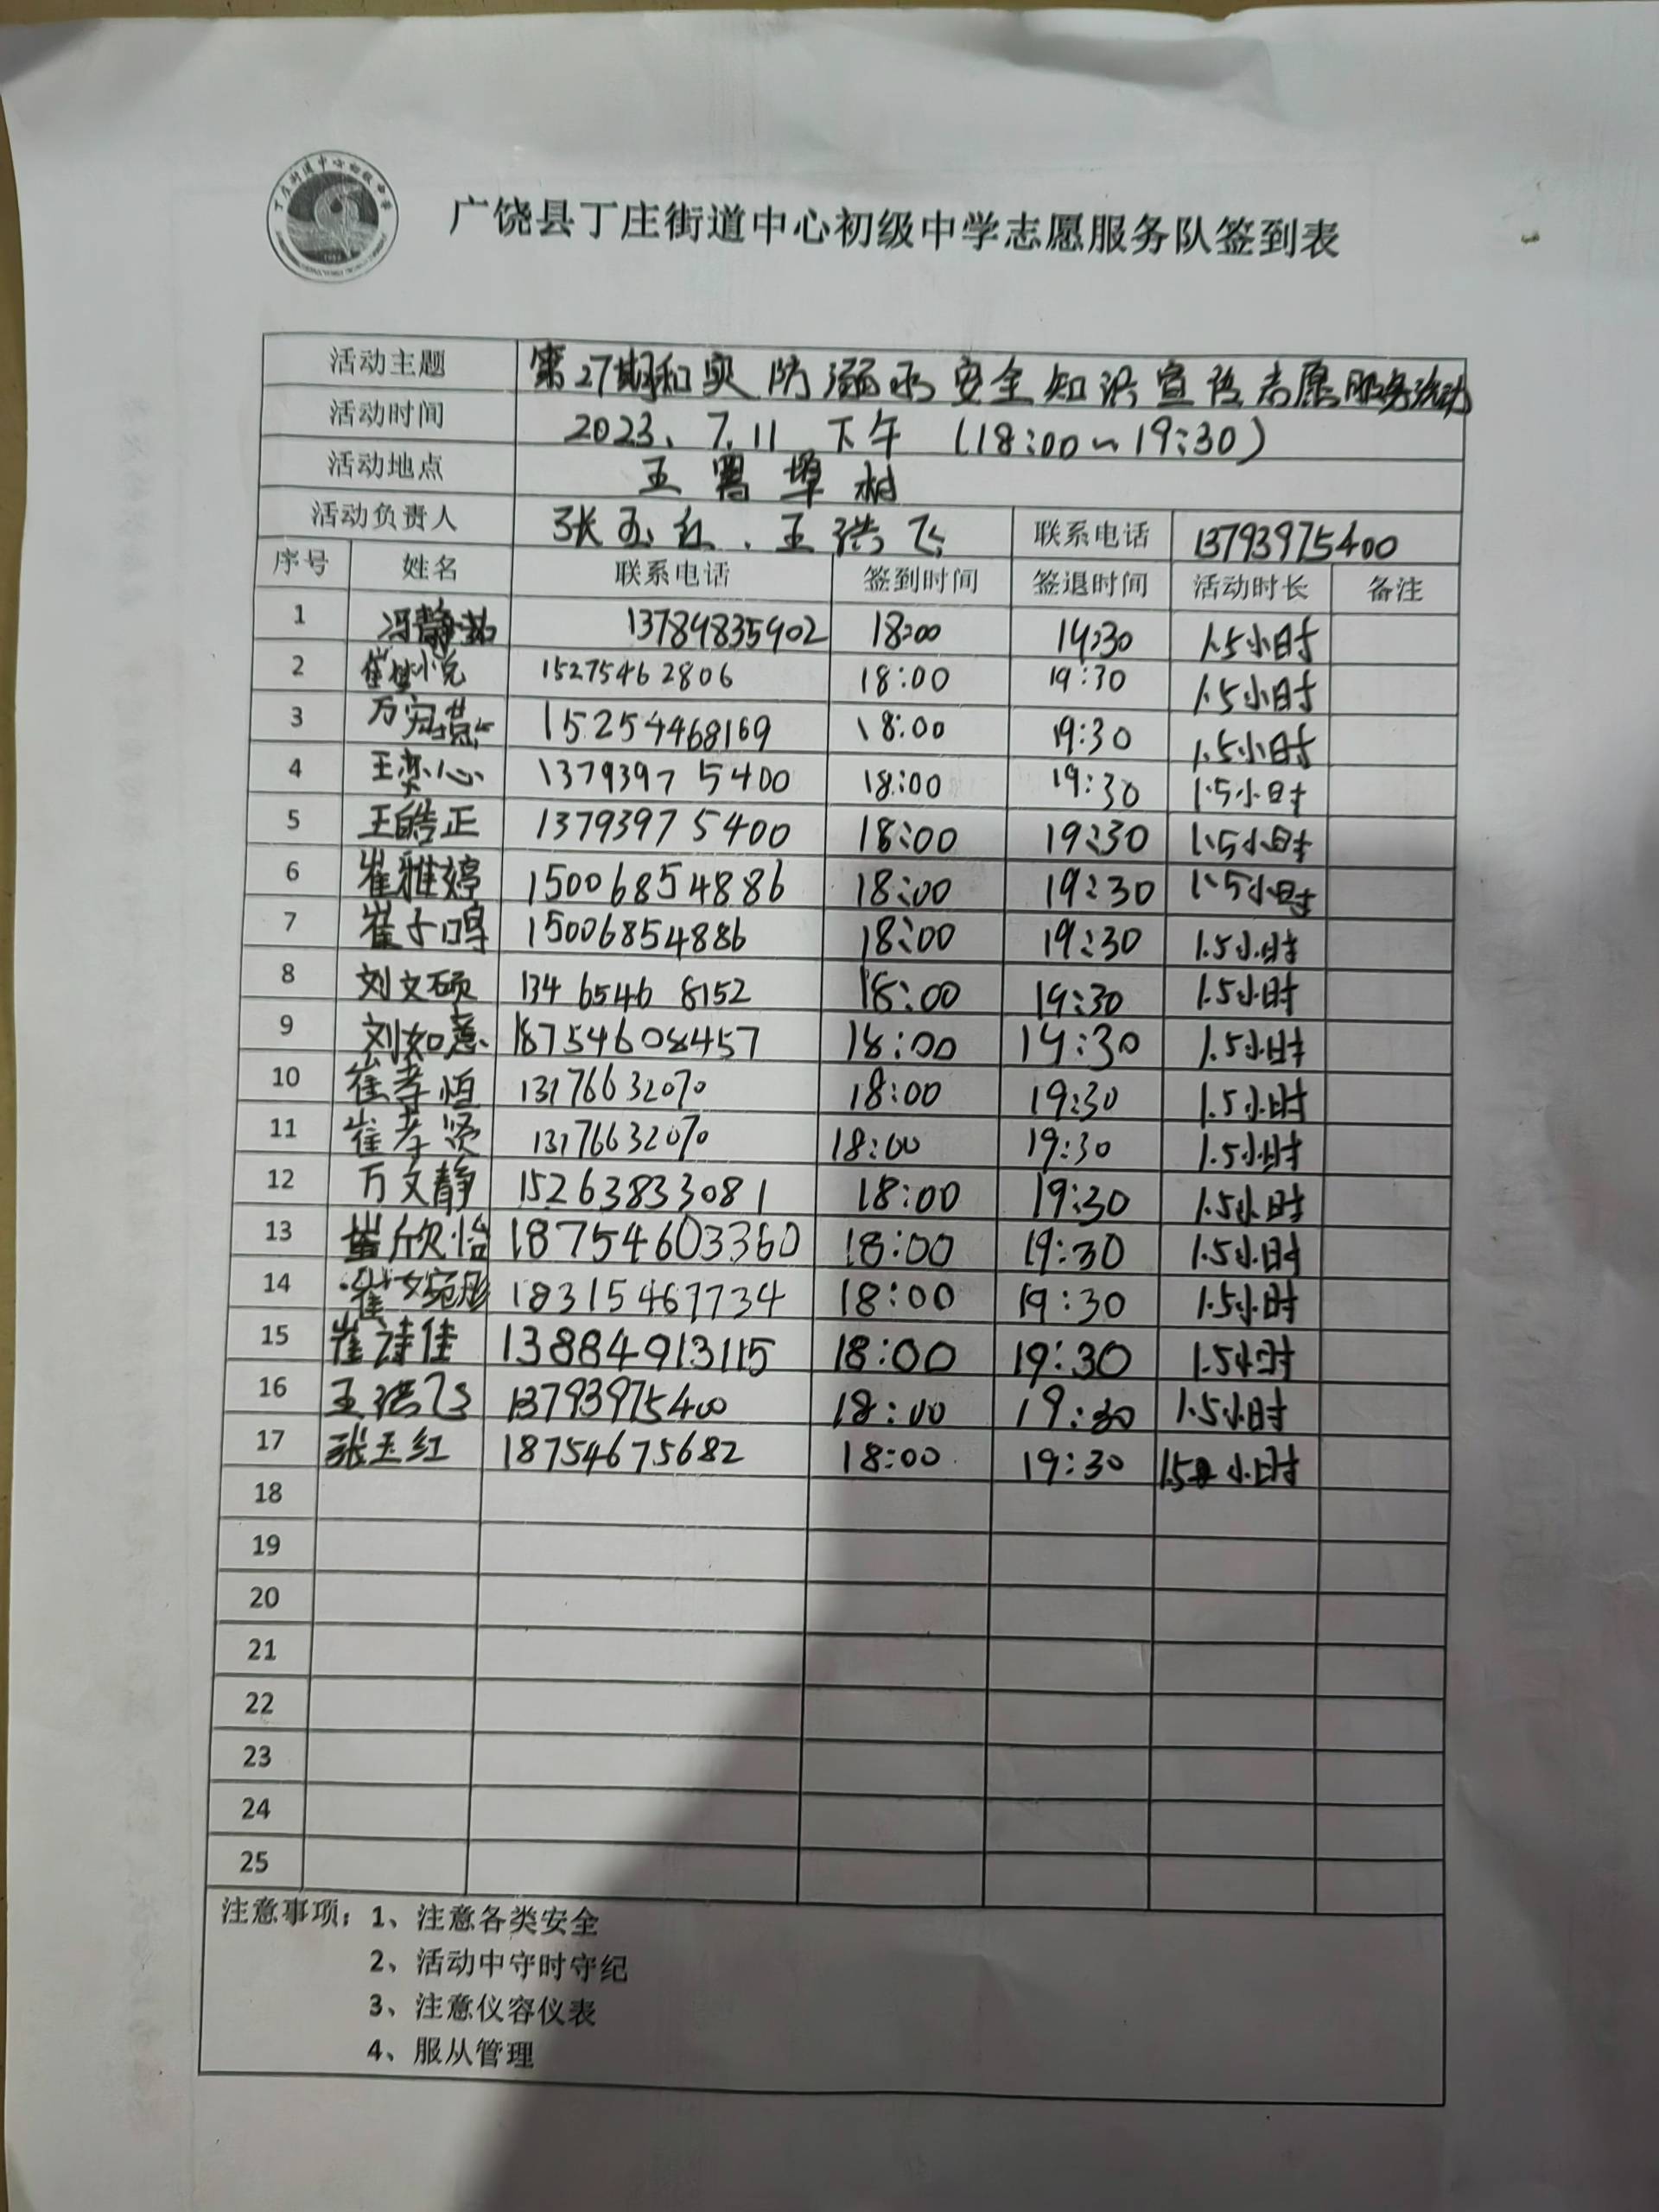 广饶县丁庄街道中心初级中学志愿服务队签到表
活动主题 第27期和实防溺水安全知识宣传志愿服务活动
活动时间 2023、7.11 下午 (18:00~19:30)
活动地点 王署埠村
活动负责人 张玉红、王浩飞 联系电话 13793975400
序号 姓名 联系电话 签到时间 签退时间 活动时长 备注
1 冯静茹 13789835902 18:00 19:30 1.5小时
2 15275462806 18:00 19:30 1.5小时
3 15254468169 18:00 19:30 1.5小时
4 王栾心 13793975400 18:00 19:30 1.5小时
5 王皓正 13793975400 18:00 19:30 1.5小时
6 崔雅婷 15006854886 18:00 19:30 1.5小时
7 崔子鸣 15006854886 18:00 19:30 1.5小时
8 刘文硕 134 6546 8152 18:00 19:30 1.5小时
9 刘如意 18754608457 18:00 19:30 1.5小时
10 崔孝恒 18:00 19:30 1.5小时
11 崔孝贤 18:00 19:30 1.5小时
12 万文静 15263833081 18:00 19:30 1.5小时
13 崔欣怡 18754603360 18:00 19:30 1.5小时
14 18315467734 18:00 19:30 1.5小时
15 崔诗佳 13884913115 18:00 19:30 1.5小时
16 王浩飞 13793975400 18:00 19:30 1.5小时
17 张玉红 18754675682 18:00 19:30 1.5小时
18
19
20
21
22
23
24
25
注意事项：1、注意各类安全
2、活动中守时守纪
3、注意仪容仪表
4、服从管理